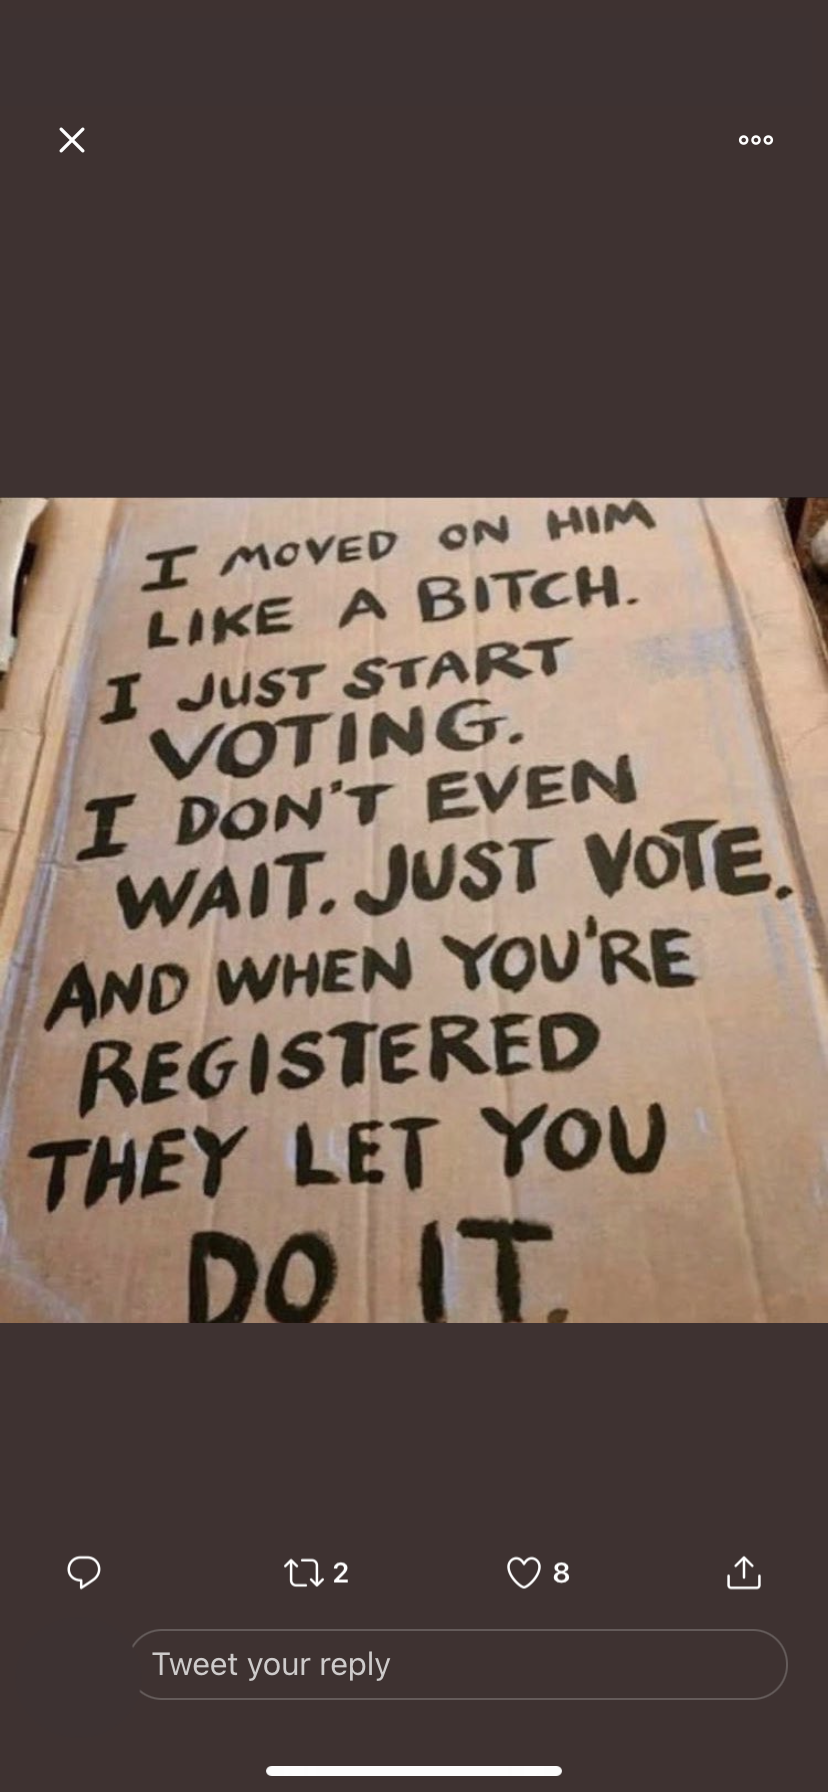 I MOVED ON HIM
LIKE A BITCH.
I JUST START
VOTING.
I DON'T EVEN
WAIT. JUST VOTE.
AND WHEN YOU'RE
REGISTERED
THEY LET YOU
DO IT.
2 8
Tweet your reply